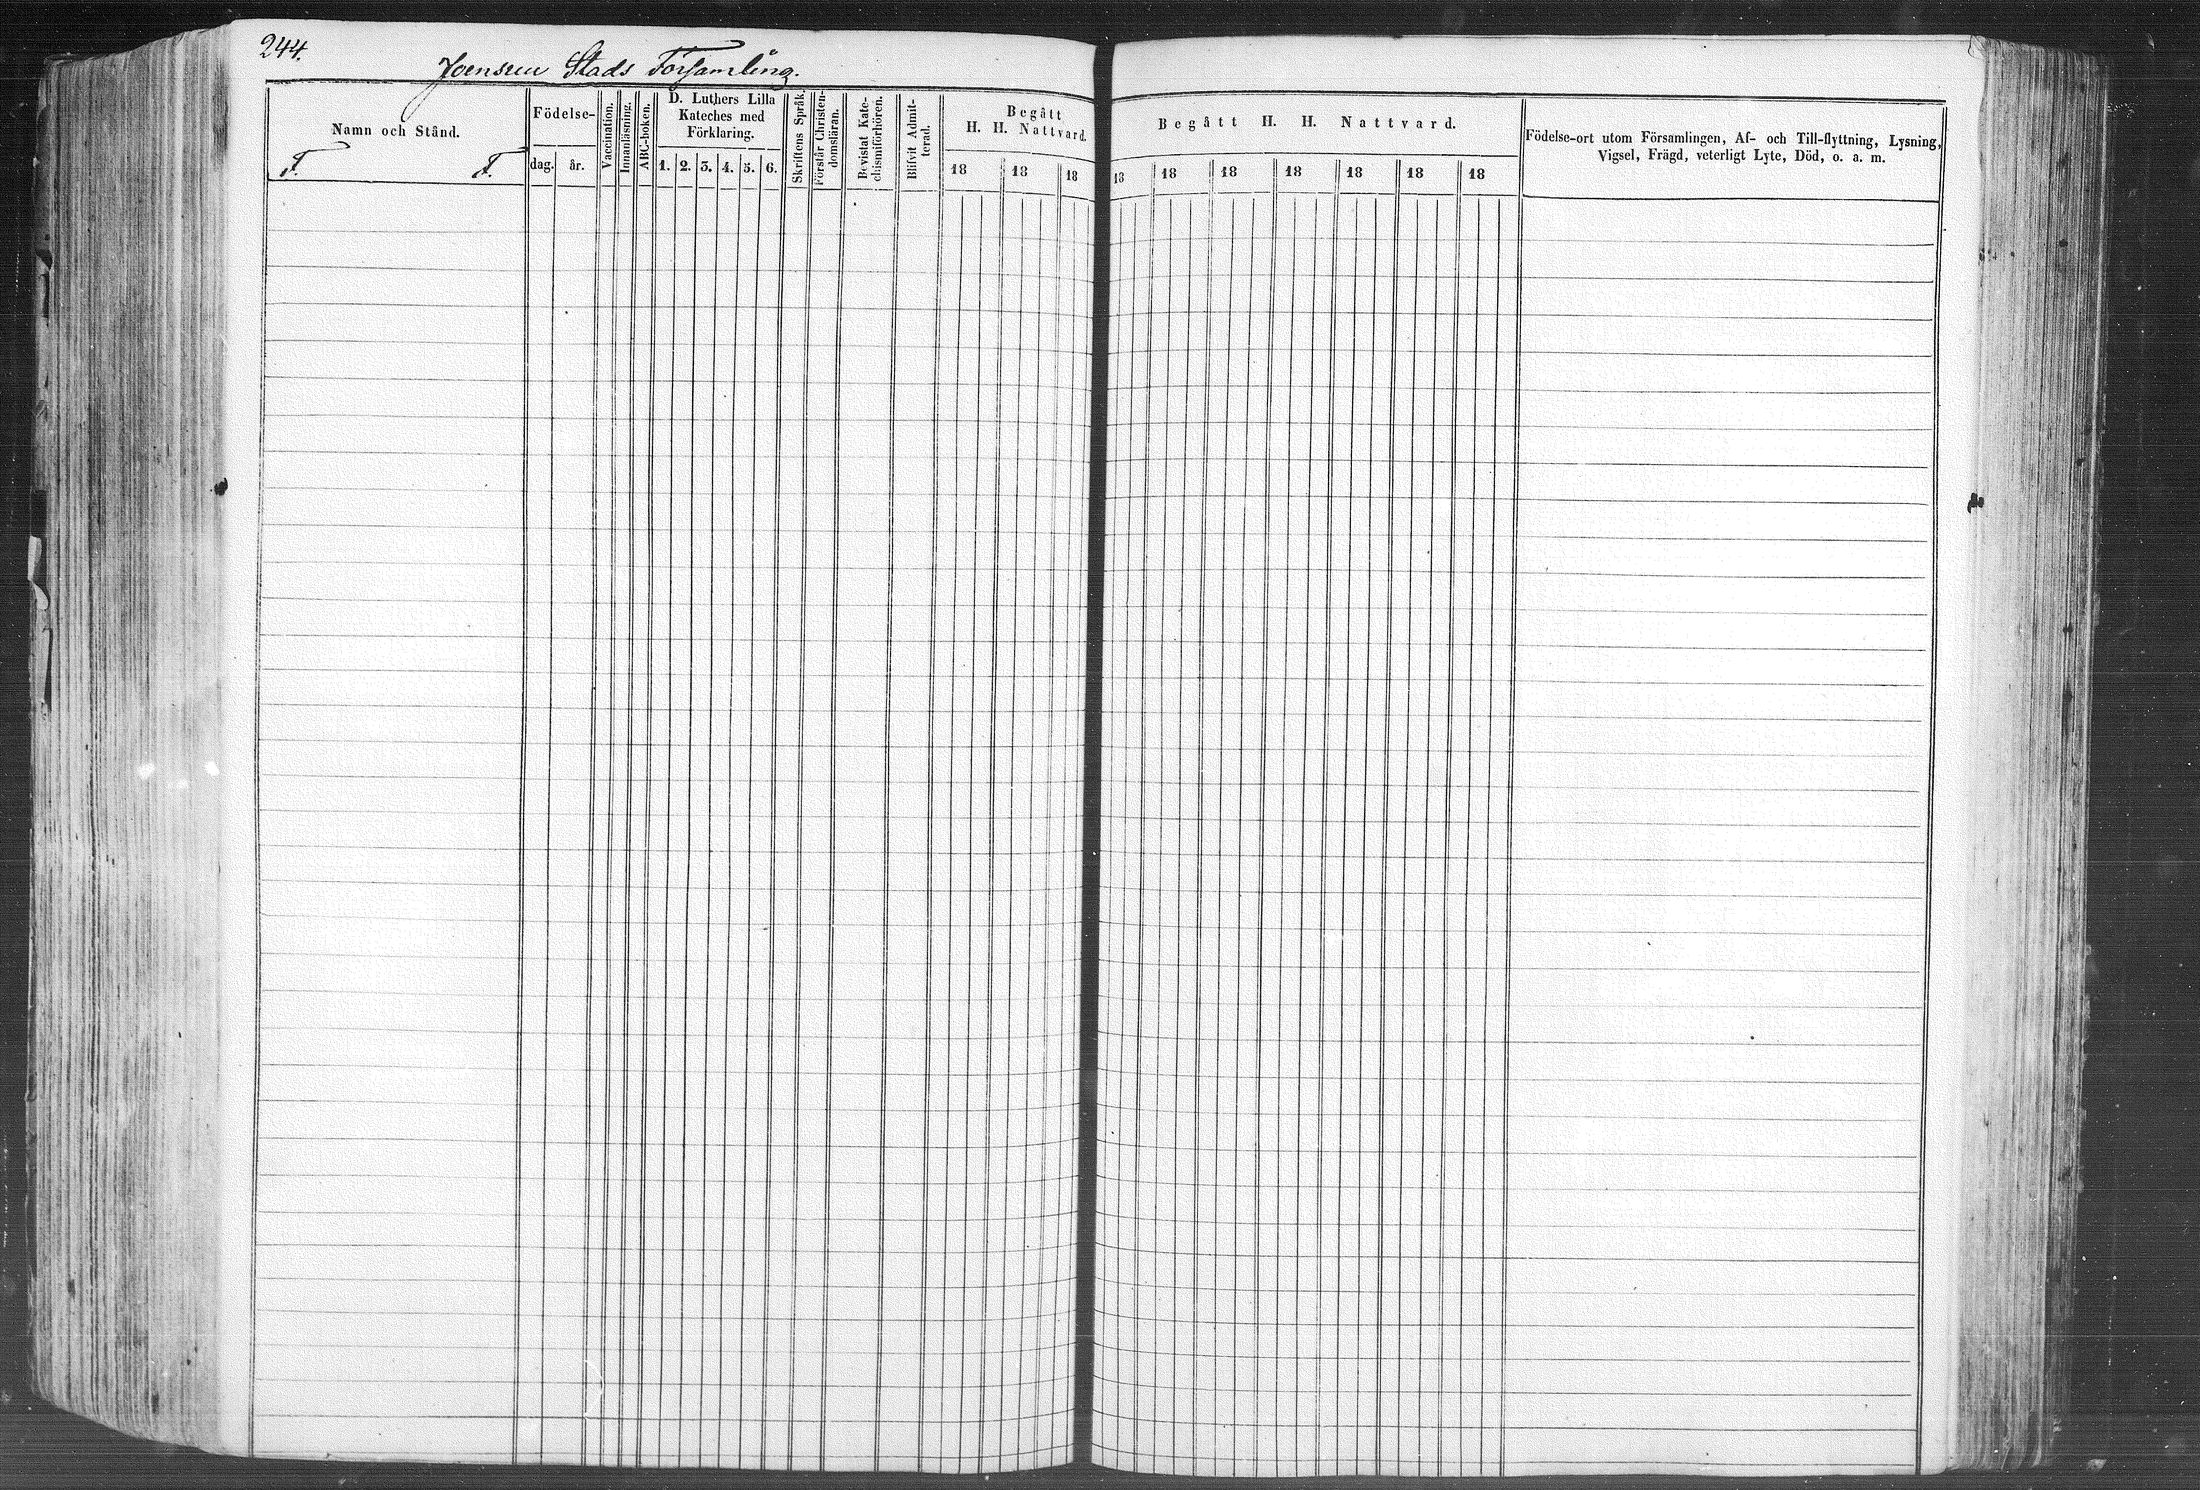 244.
Joensuu Stads Församling.
Namn och Stånd.
F. F.
Födelse-
dag. år.
Vaccination.
Innanläsning.
ABC-boken.
D. Luthers Lilla
Kateches med
Förklaring.
1. 2. 3. 4. 5. 6.
Skriftens Språk.
Förstår Christen-
domsläran.
Bevistat Kate-
chismiförhören.
Blifvit Admit-
terad.
Begått
H. H. Nattvard.
18 18 18
Begått H. H. Nattvard.
18 18 18 18 18 18 18
Födelse-ort utom Församlingen, Af- och Till-flyttning, Lysning,
Vigsel, Frägd, veterligt Lyte, Död, o. a. m.